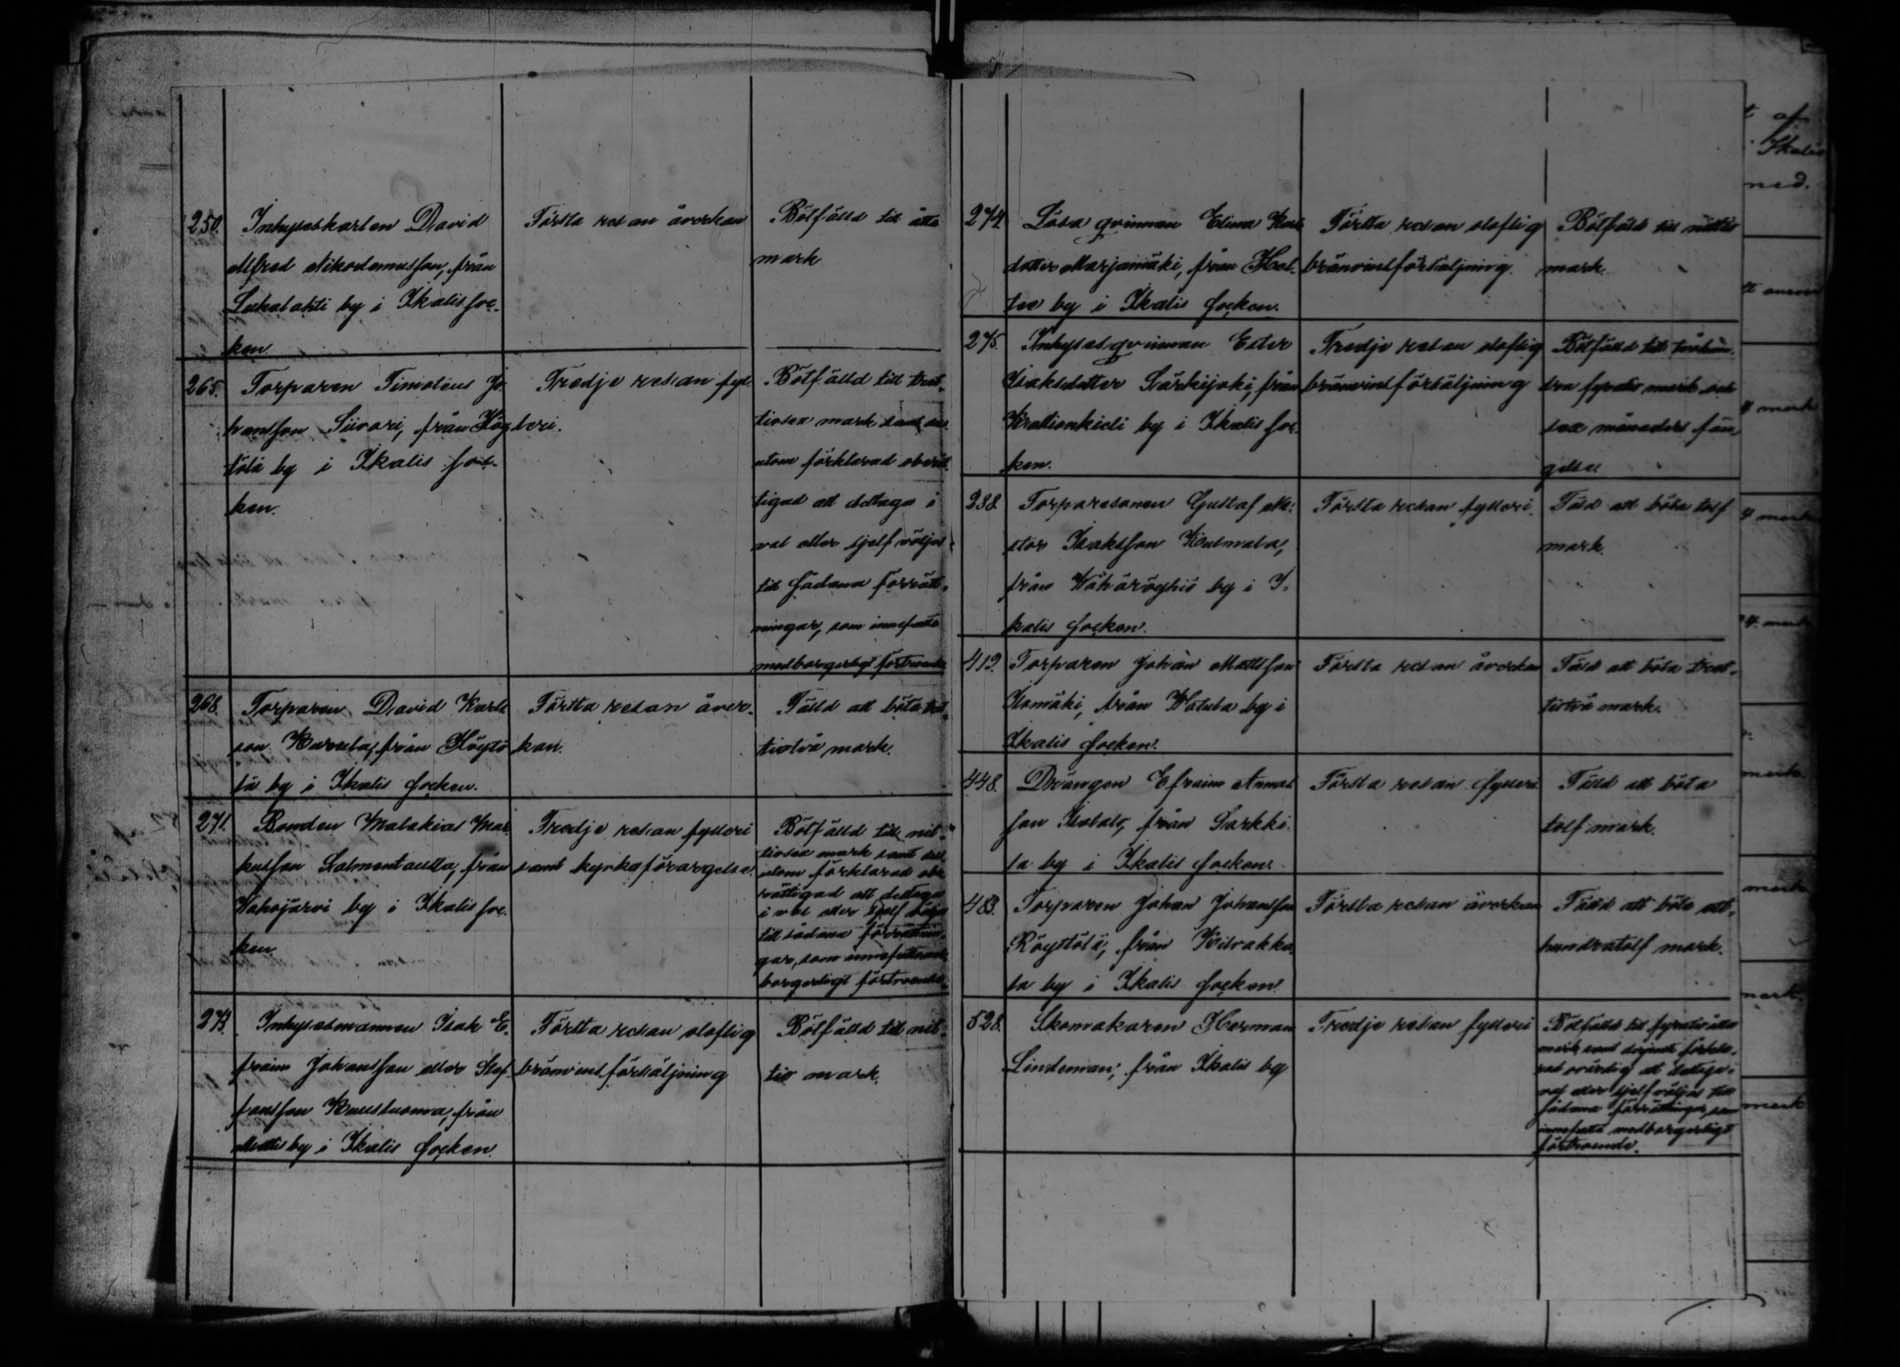 250. Inhyseskarlen David
Alfred Nikodemusson, från
Lukalahti by i Ikalis soc-
ken
Första resan åverkan
Bötfälld till åtta
mark
265. Torparen Timoteus Jo
hansson Siivari, från Höy
tölä by i Ikalis soc-
ken.
Tredje resan fyl-
leri.
Bötfälld till tret-
tiosex mark samt des
utom förklarad oberät
tigad att deltaga i
val eller sjelf väljas
till sådana förrätt-
ningar, som innefatta
medborgerligt förtroende
268. Torparen David Karls
son Karvela, från Höytö
lä by i Ikalis socken.
Första resan åver-
kan.
Fälld att böta tret
tiotvå mark.
271. Bonden Malakias Mar
kusson Salmentausta, från
Vahojärvi by i Ikalis soc-
ken.
Tredje resan fylleri
samt kyrkoförargelse.
Bötfälld till nit-
tiosex mark samt des
utom förklarad obe
rättigad att deltaga
i val eller sjelf väljas
till sådana förrättnin-
gar, som innefatta med
borgerligt förtroende.
273. Inhysesmannen Isak E-
fraim Johansson eller Stef
fansson Kuusluoma, från
by i Ikalis socken.
Första resan oloflig
bränvinsförsäljning
Bötfälld till nit-
tio mark.
274 Lösa qvinnan Elina Karls
dotter Marjamäki, från
by i Ikalis socken.
Första resan oloflig
bränvinsförsäljning.
Bötfälld till nittio
mark.
275. Inhysesqvinnan Ester
Isaksdotter Särkijoki, från
by i Ikalis soc-
ken.
Tredje resan oloflig
bränvinsförsäljning
Bötfälld till tvåhun-
dra fyratio mark och
två månaders fän-
gelse
Torparesonen Gustaf Ne-
stor Isaksson
från Vähäröyhiö by i I-
kalis socken.
Första resan fylleri.
Fäld att böta tolf
mark.
419. Torparen Johan Mattsson
Isomäki, från Vatula by i
Ikalis socken.
Första resan åverkan
Fäld att böta tret-
tiotvå mark.
448. Drängen Efraim
son från Sarkki-
la by i Ikalis socken.
Första resan fylleri
Fäld att böta
tolf mark.
483. Torparen Johan Johansson
Röyttölä, från Kilvakka-
la by i Ikalis socken.
Första resan åverkan
Fäld att böta ett-
hundratolf mark.
528. Skomakaren Herman
Lindeman, från Ikalis by
Tredje resan fylleri
Bötfälld till fyratioåtta
mark samt
ovärdig att deltaga i
val eller sjelf väljas till
sådana förrättningar, som
innefatta medborgerligt
förtroende.